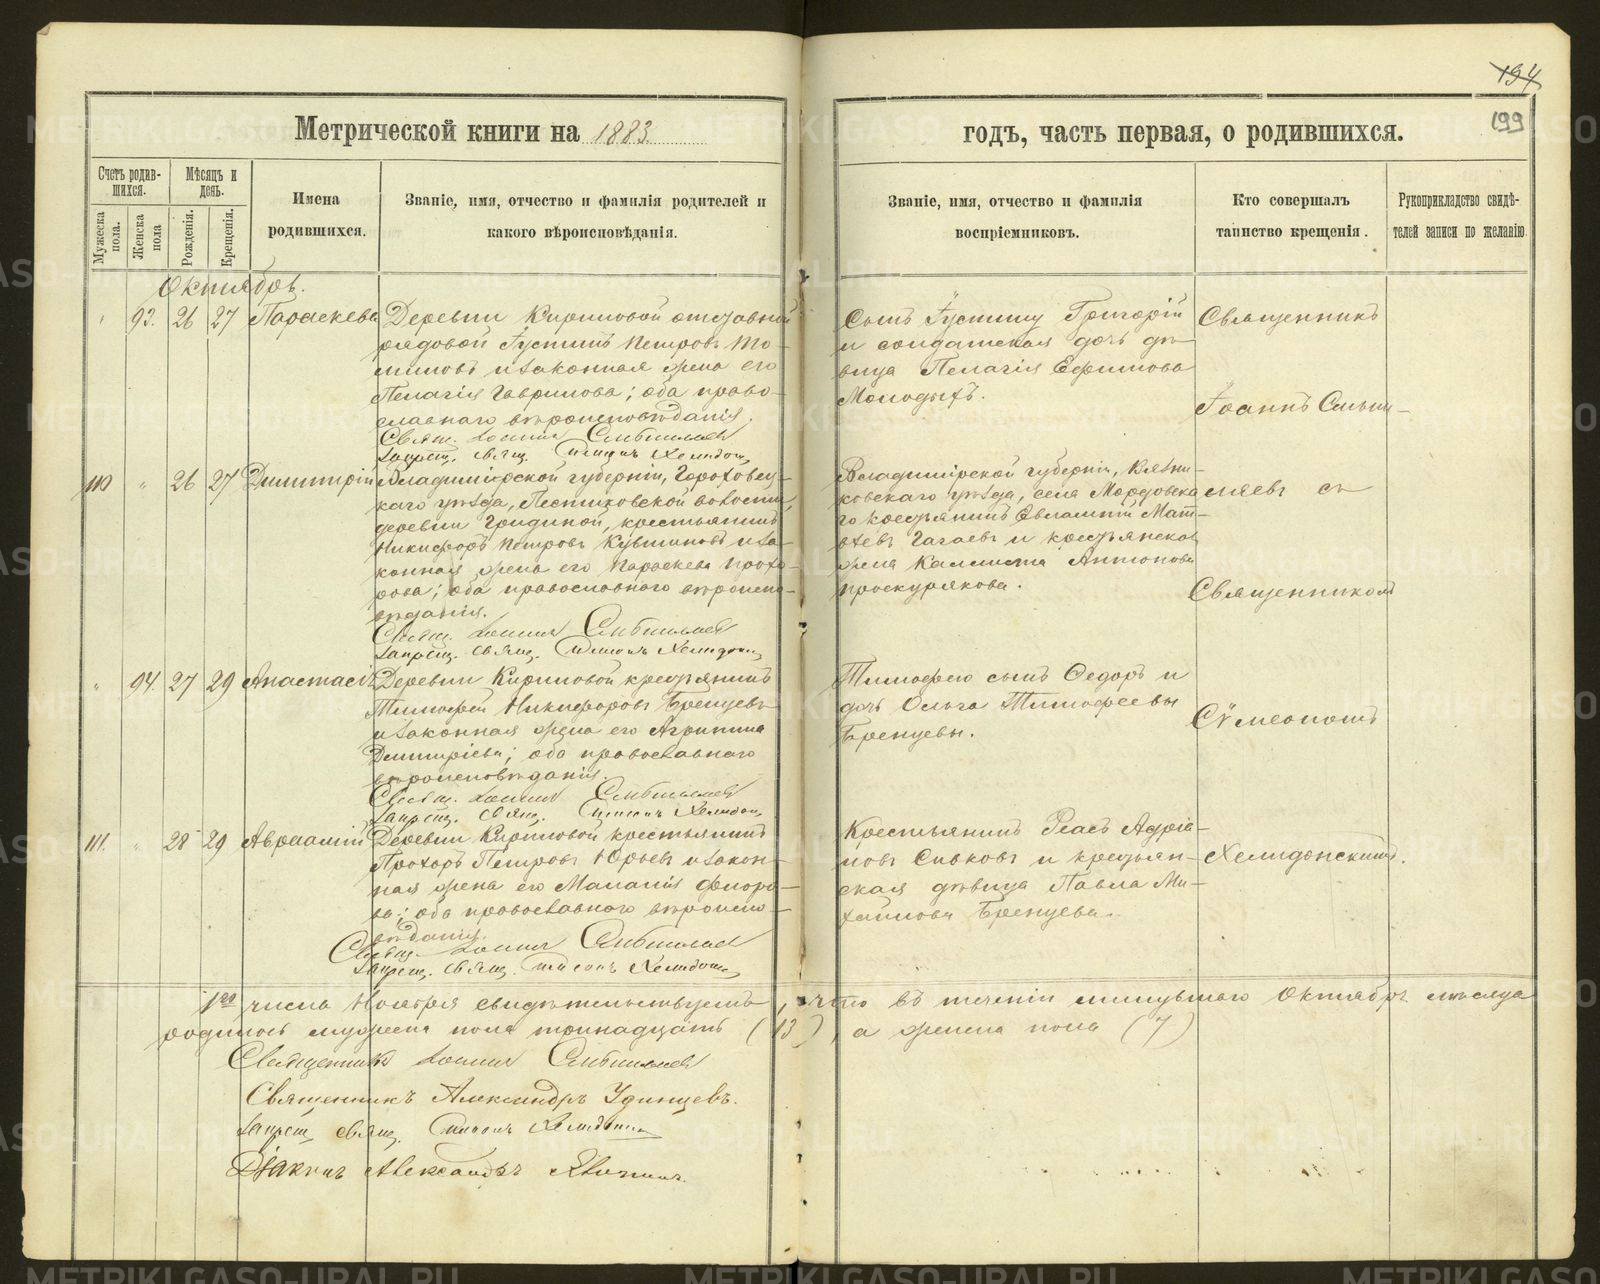 194
199
Метрической книги на 1883
годъ, часть первая, о родившихся.
Счетъ родив-
шихся.
Мѣсяцъ и
день.
Мужеска пола.
Женска пола
Рожденія.
Крещенія.
Имена
родившихся.
Званіе, имя, отчество и фамилія родителей и
какого вѣроисповѣданія.
Званіе, имя, отчество и фамилія
воспріемниковъ.
Кто совершалъ
таинство крещенія.
Рукоприкладство свидѣ-
телей записи по желанію.
Октябрь.
93. 26 27 Параскева
Деревни Кириловой отставной
рядовой Іустинъ Петровъ То-
миловъ и законная жена его
Пелагія Гаврилова; оба право-
славнаго вѣроисповѣданія.
Свящ. Іоаннъ
Запрещ. свящ. Симеонъ Хелидон
Сынъ Іустину Григорій
и солдатская дочь дѣ-
вица Пелагія Ефимова
Молодыхъ.
Священникъ
Іоаннъ
110 " 26 27 Димитрій
Владимірской губерніи, Горохове-
каго уѣзда, Пестяковской волости,
деревни Гридиной, крестьянинъ
Никифоръ Петровъ Кувшиновъ и за-
конная жена его Параскева Прохо-
рова; оба православнаго вѣроиспо-
вѣданія.
Свящ. Іоаннъ
Запрещ. свящ. Симеонъ Хелидон
Владимірской губерніи, Вязни-
ковскаго уѣзда, села Мордовска
го крестьянинъ Евлампій Мат-
вѣевъ Гагаевъ и крестьянска
жена Каллиста Антонова
Проскурякова.
съ
Священникомъ
" 94. 27 29 Анастасія
Деревни Кириловой крестьянинъ
Тимофей Никифоровъ Бренцевъ
и законная жена его Агрипина
Димитріева; оба православнаго
вѣроисповѣданія.
Свящ. Іоаннъ
Запрещ. свящ. Симеонъ Хелидон
Тимофею сынъ Федоръ и
дочь Ольга Тимофеевы
Бренцевы.
Сѵмеономъ
111. " 28 29 Авраамій
Деревни Кириловой крестьянинъ
Прохоръ Петровъ Юрьевъ и закон-
ная жена его Маланія Флоро-
ва; оба православнаго вѣроиспо-
вѣданія.
Свящ. Іоаннъ
Запрещ. свящ. Симеонъ Хелидон
Крестьянинъ Адріа-
новъ Сивковъ и крестьян-
ская дѣвица Павла Ми-
хайлова Бренцева.
Хелидонскимъ.
1го числа Ноября свидѣтельствуемъ, что въ теченіи минувшаго Октябрь мѣсяца
родилось мужеска пола тринадцать (13), а женска пола (7)
Священникъ Іоаннъ
Священникъ Александръ Удинцевъ.
Запрещ. свящ. Симеонъ Хелидон
Діаконъ Александръ
METRIKI.GASO-URAL.RU